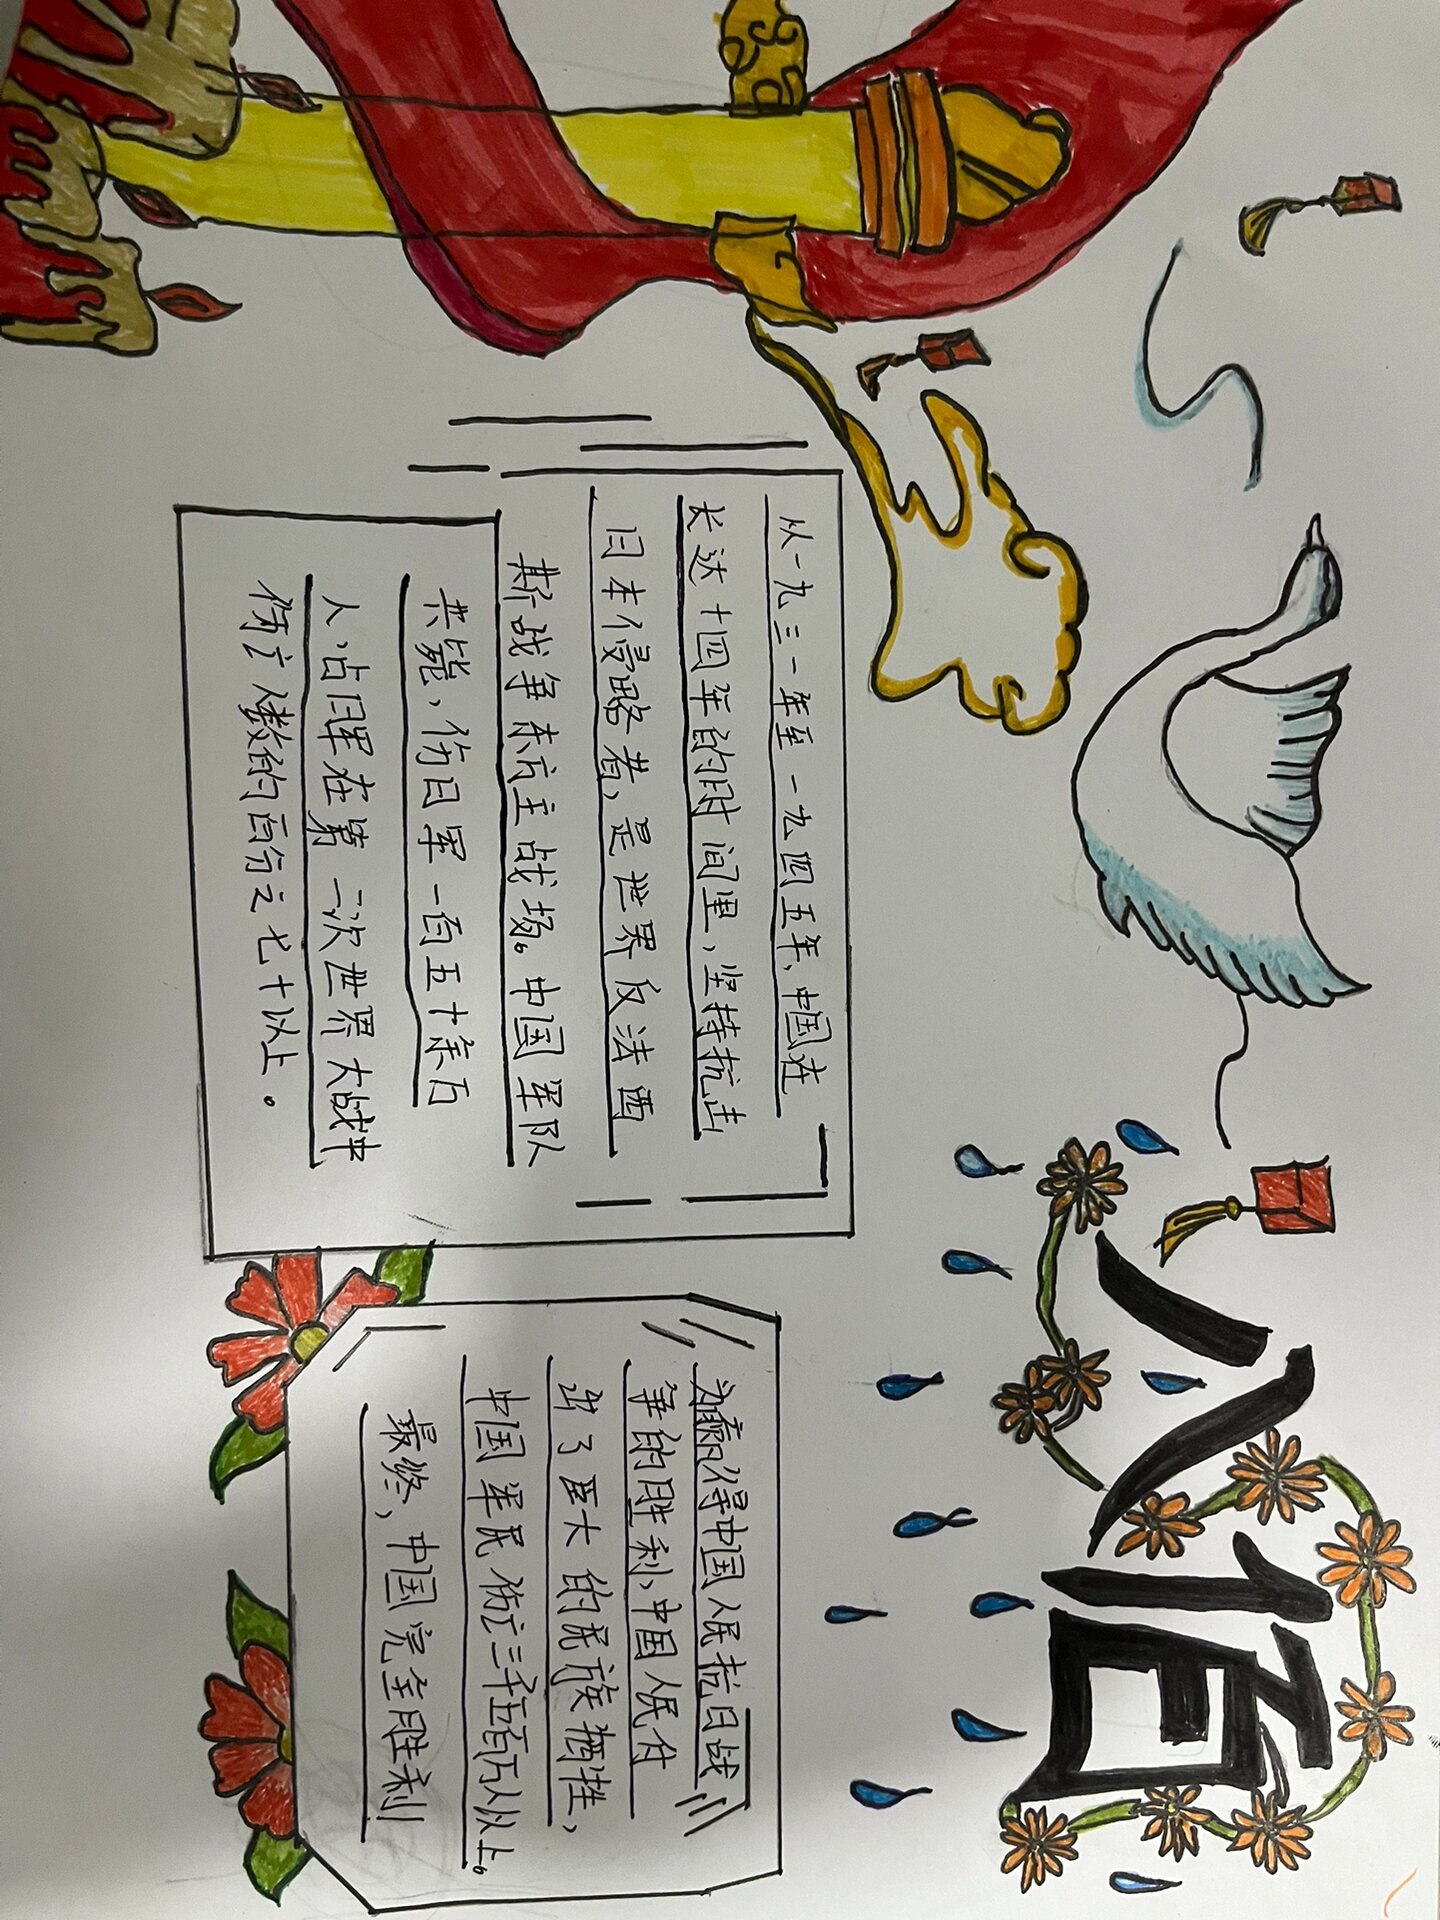 八佰
从一九三一年至一九四五年、中国在
长达十四年的时间里，坚持抗击
日本侵略者，是世界反法西
斯战争东方主战场。中国军队
共毙，伤日军一百五十余万
人，占日军在第二次世界大战中
伤亡人数的百分之七十以上。
为赢得中国人民抗日战
争的胜利、中国人民付
出了巨大的民族牺牲，
中国军民伤亡三千五百万人以上。
最终，中国完全胜利